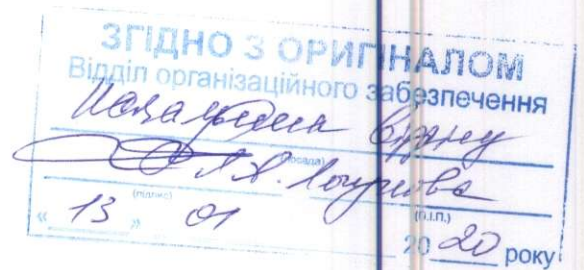 ЗГІДНО З ОРИГІНАЛОМ
Відділ організаційного забезпечення
Начальник відділу
(посада)
(підпис) (п.і.п.)
« 13 » 01 2020 року